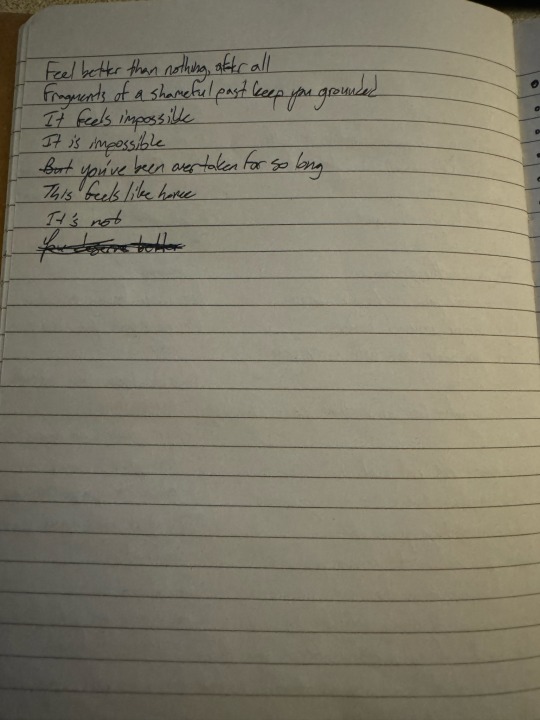 Feel better than nothing, after all
Fragments of a shameful past keep you grounded
It feels impossible
It is impossible
But you've been overtaken for so long
This feels like home
It's not
You deserve better